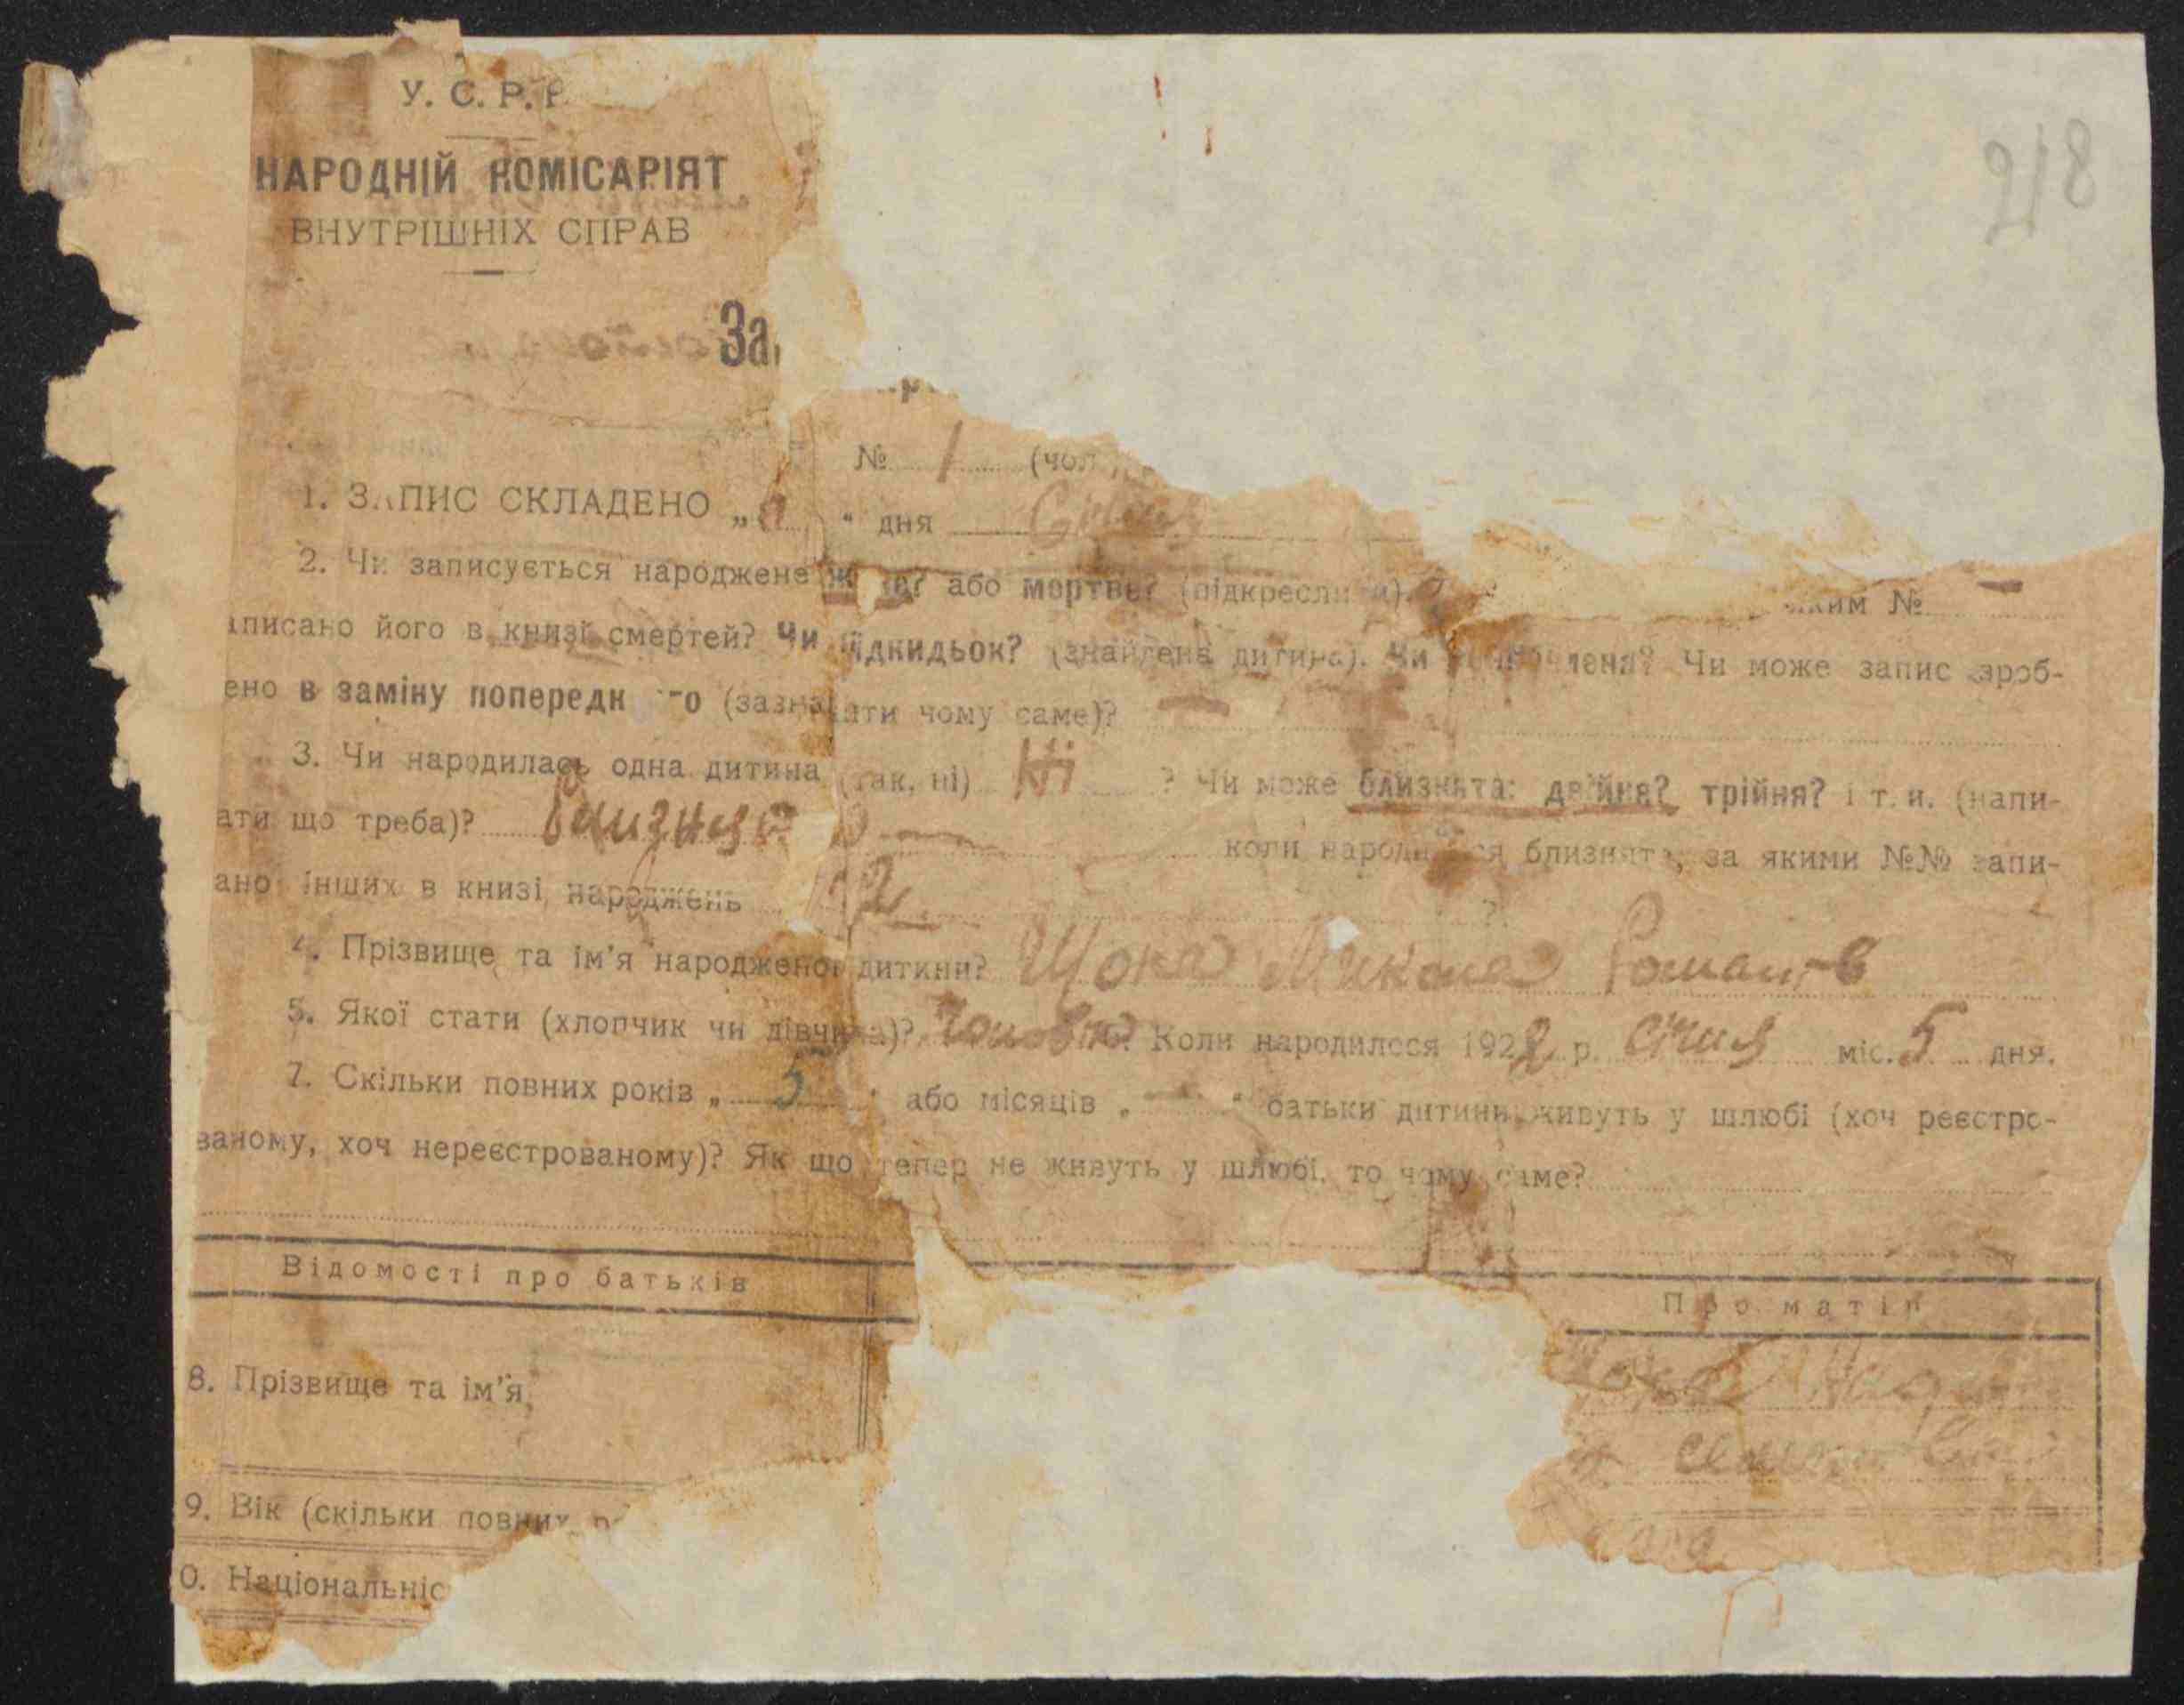 218
У. С. Р. Р.
НАРОДНІЙ КОМІСАРІЯТ
ВНУТРІШНІХ СПРАВ
За
№ 1 (чол
1. ЗАПИС СКЛАДЕНО „ “ дня Січня
2. Чи записується народжене або мертве? (підкреслити) яким № —
аписано його в книзі смертей? Чи підкидьок? (знайдена дитина). Чи Чи може запис зроб-
ено в заміну попереднього (зазначати чому саме)? —
3. Чи народилась одна дитина (так, ні) Ні ? Чи може близнята: двійня? трійня? і т. и. (напи-
ати що треба)? близнят коли народилися близнята, за якими №№ запи-
ано інших в книзі народжень 2 ?
4. Прізвище та ім'я народженої дитини? Щока Микола Роман-в
5. Якої стати (хлопчик чи дівчина)? Коли народилося 1922 р. січня міс. 5 дня.
7. Скільки повних років „ 5 “ або місяців „ — “ батьки дитини живуть у шлюбі (хоч реєстро-
ваному, хоч нереєстрованому)? Як що тепер не живуть у шлюбі, то чому саме?
Відомості про батьків
Про матір
8. Прізвище та ім'я
9. Вік (скільки повних
0. Національніс